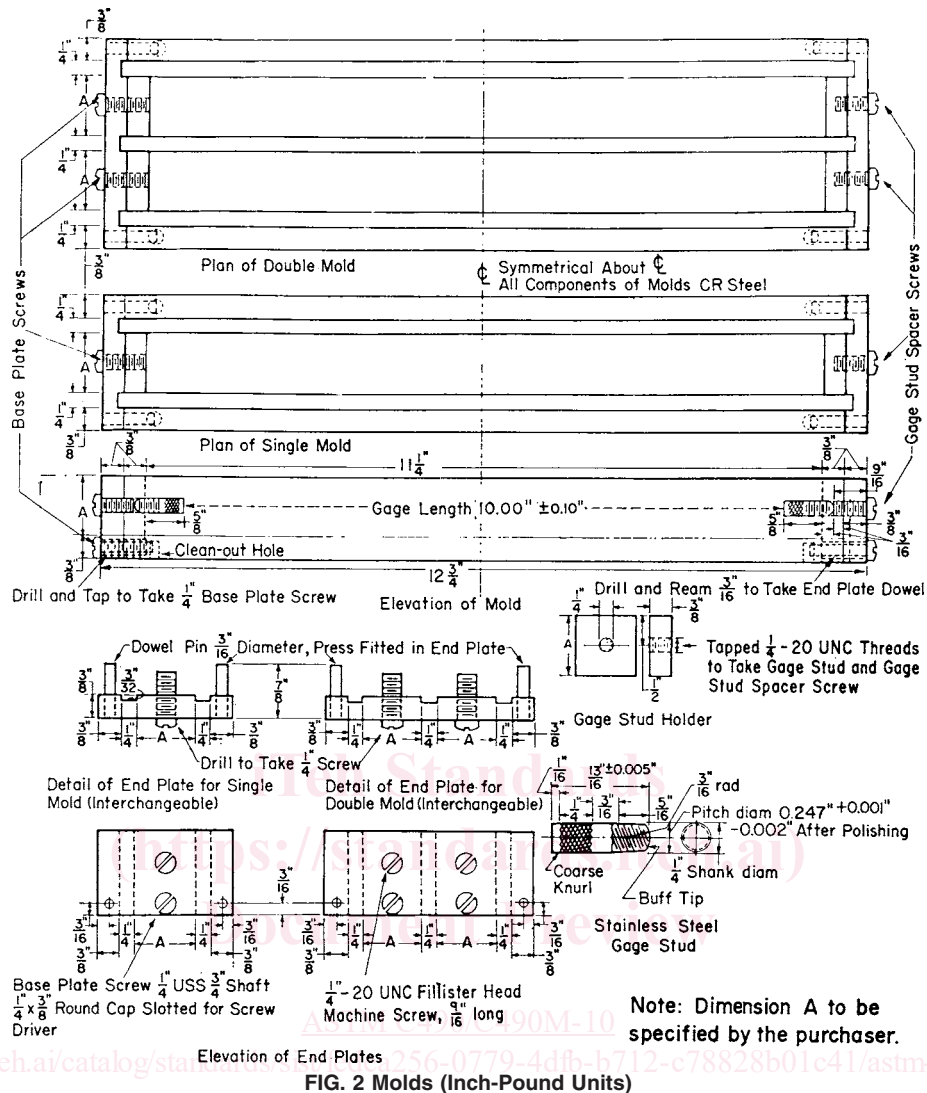 3/8"
1/4"
A
1/4"
A
1/4"
3/8"
Base Plate Screws
Gage Stud Spacer Screws
Plan of Double Mold
℄ Symmetrical About ℄
All Components of Molds CR Steel
1/4"
A
1/4"
3/8"
Plan of Single Mold
3/8"
11 1/4"
3/8"
9/16"
A
Gage Length 10.00" ±0.10"
5/8"
5/8"
3/8"
3/16"
3/8"
Clean-out Hole
12 3/4"
Drill and Tap to Take 1/4" Base Plate Screw
Elevation of Mold
Drill and Ream 3/16" to Take End Plate Dowel
1/4"
3/8"
A
1/2"
Tapped 1/4"-20 UNC Threads
to Take Gage Stud and Gage
Stud Spacer Screw
Gage Stud Holder
Dowel Pin 3/16" Diameter, Press Fitted in End Plate
3/8"
3/32"
7/8"
3/8" 1/4" A 1/4" 3/8"
3/8" 1/4" A 1/4" A 1/4" 3/8"
Drill to Take 1/4" Screw
Detail of End Plate for Single
Mold (Interchangeable)
Detail of End Plate for
Double Mold (Interchangeable)
1/16"
13/16" ±0.005"
3/16" rad
1/4" 3/16" 5/16"
Pitch diam 0.247" +0.001"
-0.002" After Polishing
Coarse
Knurl
1/4" Shank diam
Buff Tip
Stainless Steel
Gage Stud
3/16"
3/16" 1/4" A 1/4" 3/16"
3/8" 3/8"
3/16" 1/4" A 1/4" A 1/4" 3/16"
3/8" 3/8"
Base Plate Screw 1/4" USS 3/4" Shaft
1/4" x 3/8" Round Cap Slotted for Screw
Driver
1/4"-20 UNC Fillister Head
Machine Screw, 9/16" long
Note: Dimension A to be
specified by the purchaser.
Elevation of End Plates
iTeh Standards
(https://standards.iteh.ai)
Document Preview
ASTM C490/C490M-10
FIG. 2 Molds (Inch-Pound Units)